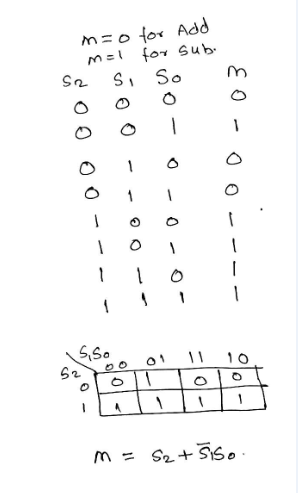 m=0 for Add
m=1 for Sub.
S2 S1 S0 m
0 0 0 0
0 0 1 1
0 1 0 0
0 1 1 0
1 0 0 1
1 0 1 1
1 1 0 1
1 1 1 1
S1S0
S2 00 01 11 10
0 0 1 0 0
1 1 1 1 1
m = S2 + S̅1S0.